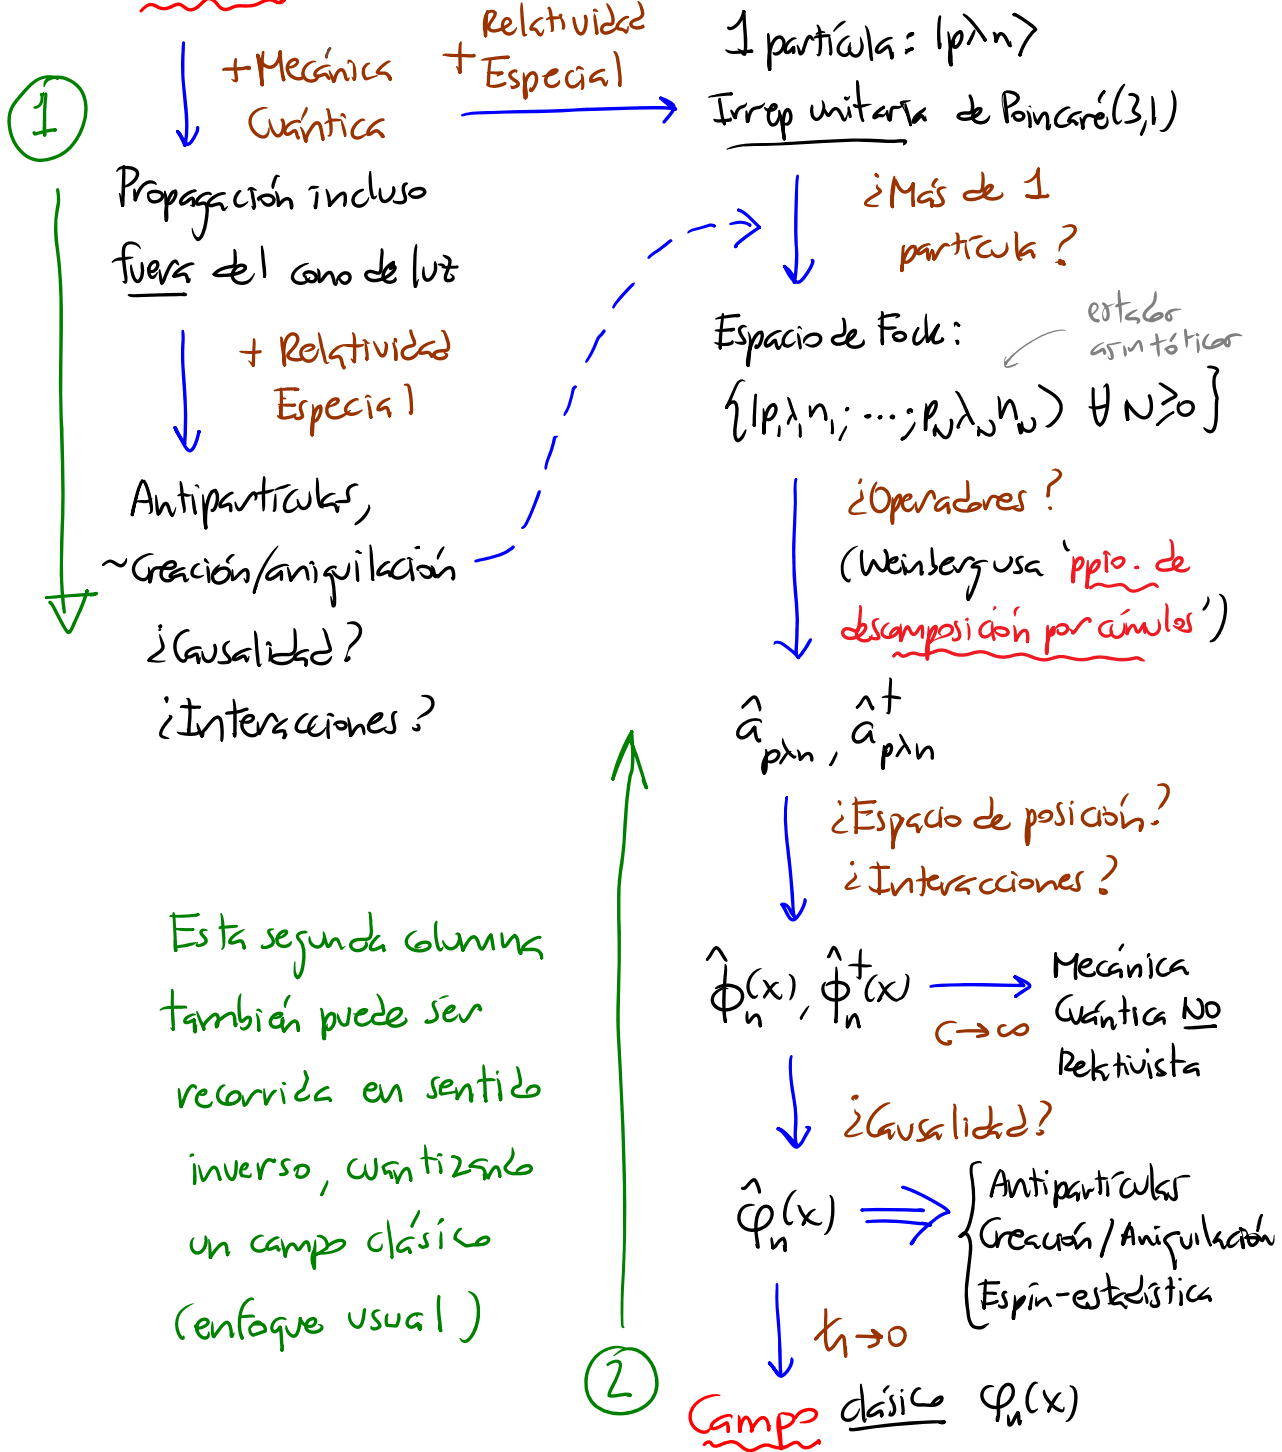 1
+ Mecánica
Cuántica
Propagación incluso
fuera del cono de luz
+ Relatividad
Especial
Antipartículas,
~Creación/aniquilación
¿Causalidad?
¿Interacciones?
Esta segunda columna
también puede ser
recorrida en sentido
inverso, cuantizando
un campo clásico
(enfoque usual)
+ Relatividad
Especial
1 partícula: |pλn⟩
Irrep unitaria de Poincaré(3,1)
¿Más de 1
partícula?
Espacio de Fock:
estados
asintóticos
{|p₁λ₁n₁; ...; p_Nλ_Nn_N⟩ ∀ N≥0}
¿Operadores?
(Weinberg usa 'ppio. de
descomposición por cúmulos')
â_pλn, â†_pλn
¿Espacio de posición?
¿Interacciones?
ϕ̂_n(x), ϕ̂†_n(x)
c→∞
Mecánica
Cuántica NO
Relativista
¿Causalidad?
φ̂_n(x) ⇒
{ Antipartículas
Creación/Aniquilación
Espín-estadística
ħ→0
2
Campo clásico φ_n(x)